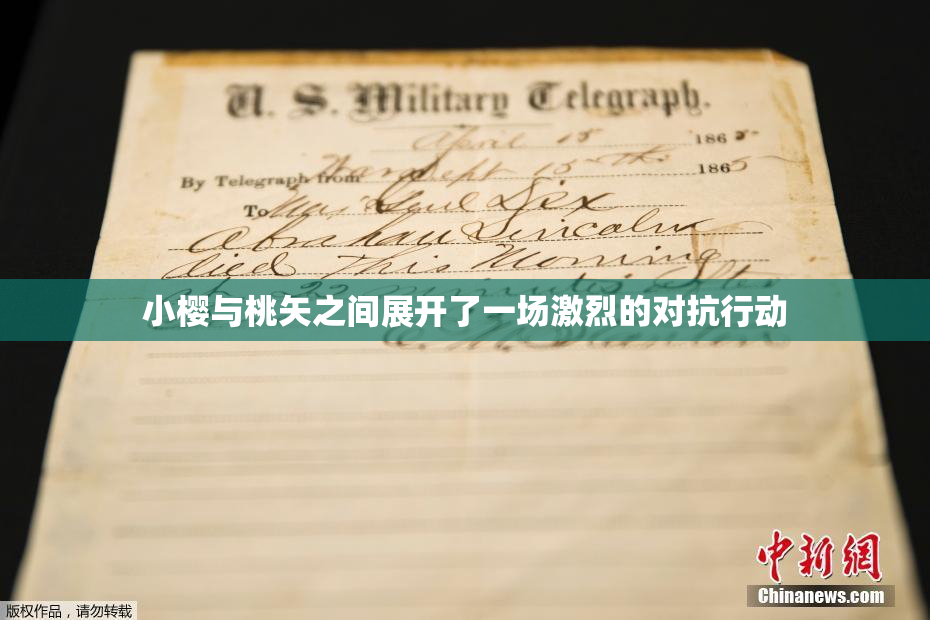 U. S. Military Telegraph.
April 15 1865
By Telegraph from War Dept 15th 1865
To Maj Genl Dix
Abraham Lincoln
died This Morning
小樱与桃矢之间展开了一场激烈的对抗行动
中新网
Chinanews.com
版权作品，请勿转载